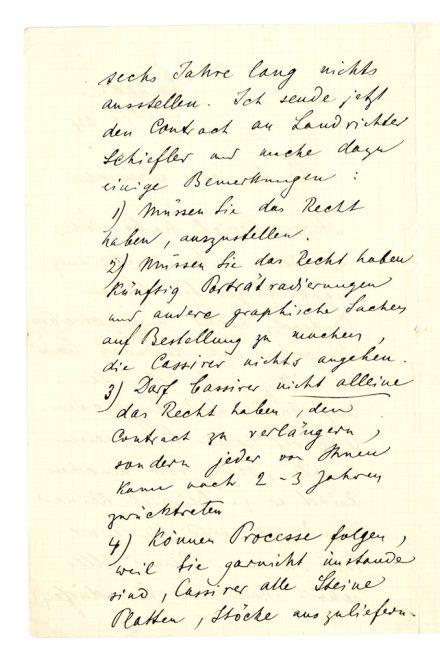 sechs Jahre lang nichts
ausstellen. Ich sende jetzt
den Contract an Landrichter
Schiefler und mache dazu
einige Bemerkungen :
1) Müssen Sie das Recht
haben, auszustellen.
2) Müssen Sie das Recht haben
künftig Porträtradierungen
und andere graphische Sachen
auf Bestellung zu machen,
die Cassirer nichts angehen.
3) Darf Cassirer nicht alleine
das Recht haben, den
Contract zu verlängern,
sondern jeder von Ihnen
kann nach 2-3 Jahren
zurücktreten
4) Können Processe folgen,
weil Sie garnicht imstande
sind, Cassirer alle Steine
Platten, Stöcke auszuliefern.